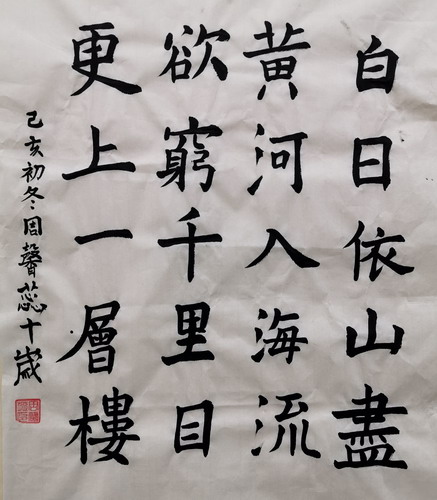 白日依山盡
黃河入海流
欲窮千里目
更上一層樓
己亥初冬周馨蕊十歲